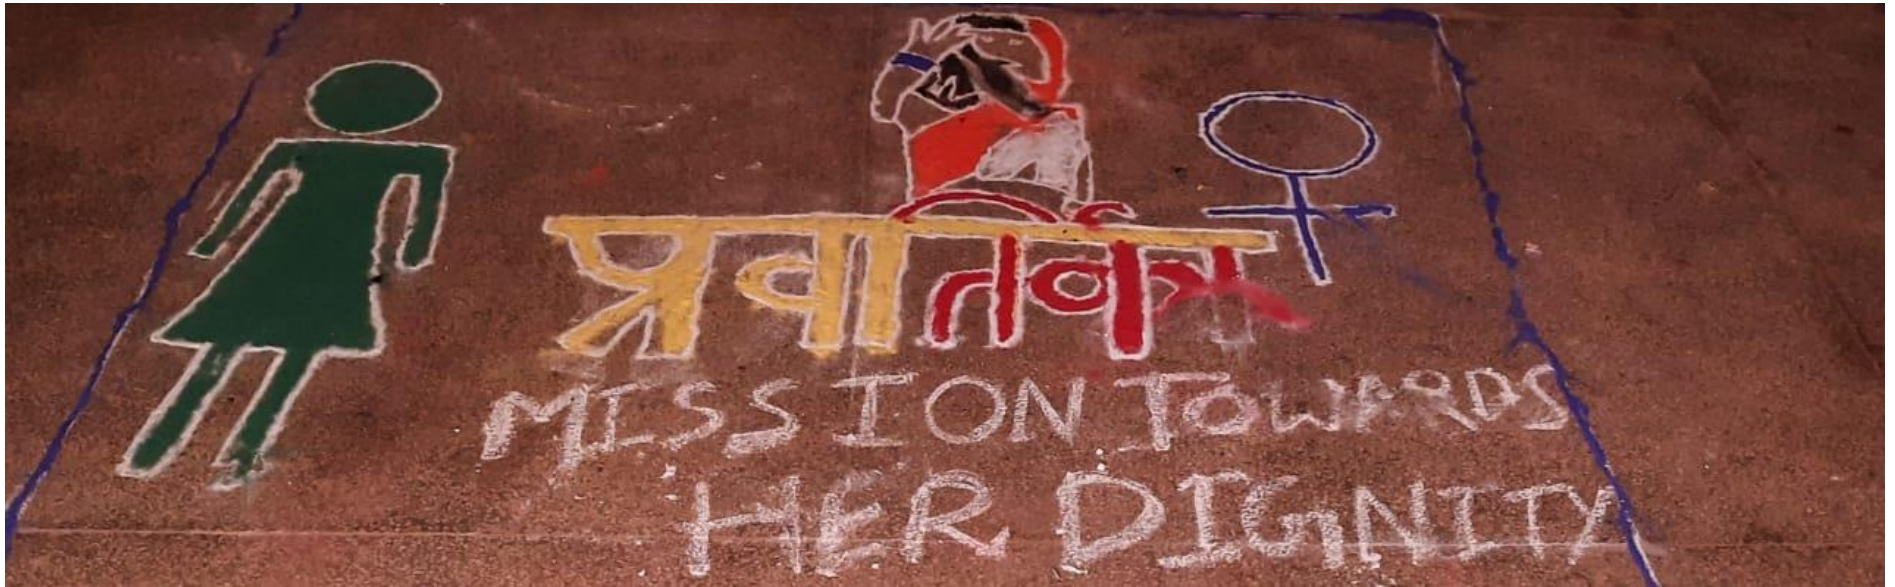 प्रवर्तिका
MISSION TOWARDS
HER DIGNITY